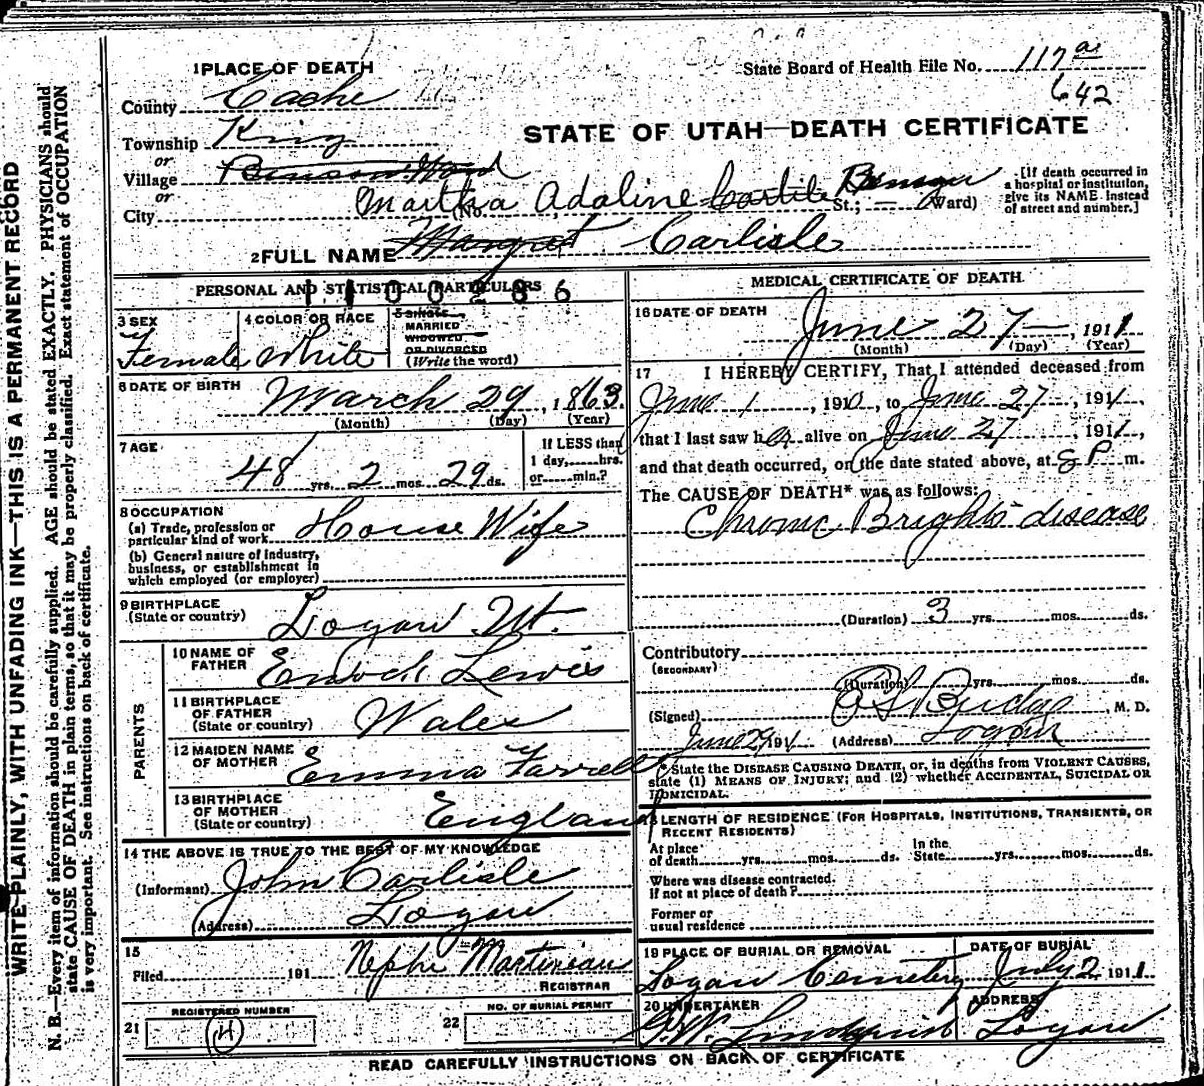 1 PLACE OF DEATH
State Board of Health File No. 117 a
642
County Cache
Township King
or
Village Benson Ward
or
City
STATE OF UTAH—DEATH CERTIFICATE
(No. St.; — Ward)
[If death occurred in a hospital or institution, give its NAME instead of street and number.]
Martha Adaline Carlile
2 FULL NAME Margret Carlisle
PERSONAL AND STATISTICAL PARTICULARS
3 SEX
Female
4 COLOR OR RACE
White
5 SINGLE,
MARRIED
WIDOWED
OR DIVORCED
(Write the word)
6 DATE OF BIRTH
March 29, 1863.
(Month) (Day) (Year)
7 AGE
48 yrs. 2 mos. 29 ds.
If LESS than
1 day, hrs.
or min.?
8 OCCUPATION
(a) Trade, profession or
particular kind of work House Wife
(b) General nature of industry,
business, or establishment in
which employed (or employer)
9 BIRTHPLACE
(State or country) Logan Ut.
PARENTS
10 NAME OF
FATHER Enoch Lewis
11 BIRTHPLACE
OF FATHER
(State or country) Wales
12 MAIDEN NAME
OF MOTHER Emma Farrell
13 BIRTHPLACE
OF MOTHER
(State or country) England
14 THE ABOVE IS TRUE TO THE BEST OF MY KNOWLEDGE
(Informant) John Carlisle
(Address) Logan
15
Filed 191 Nephi Martineau
REGISTRAR
21 REGISTERED NUMBER
22 NO. OF BURIAL PERMIT
MEDICAL CERTIFICATE OF DEATH
16 DATE OF DEATH
June 27, 1911
(Month) (Day) (Year)
17 I HEREBY CERTIFY, That I attended deceased from
June 1, 1910, to June 27, 1911,
that I last saw her alive on June 27, 1911,
and that death occurred, on the date stated above, at 8 P m.
The CAUSE OF DEATH* was as follows:
Chronic Brights disease
(Duration) 3 yrs. mos. ds.
Contributory
(SECONDARY)
(Duration) yrs. mos. ds.
(Signed) M. D.
June 29 1911 (Address) Logan
*State the DISEASE CAUSING DEATH, or, in deaths from VIOLENT CAUSES,
state (1) MEANS OF INJURY; and (2) whether ACCIDENTAL, SUICIDAL OR
HOMICIDAL.
18 LENGTH OF RESIDENCE (FOR HOSPITALS, INSTITUTIONS, TRANSIENTS, OR
RECENT RESIDENTS)
At place
of death yrs. mos. ds.
In the
State yrs. mos. ds.
Where was disease contracted.
if not at place of death?
Former or
usual residence
19 PLACE OF BURIAL OR REMOVAL
Logan Cemetery
DATE OF BURIAL
July 2 1911
20 UNDERTAKER
ADDRESS
Logan
READ CAREFULLY INSTRUCTIONS ON BACK OF CERTIFICATE
WRITE PLAINLY, WITH UNFADING INK—THIS IS A PERMANENT RECORD
N. B.—Every item of information should be carefully supplied. AGE should be stated EXACTLY. PHYSICIANS should
state CAUSE OF DEATH in plain terms, so that it may be properly classified. Exact statement of OCCUPATION
is very important. See instructions on back of certificate.